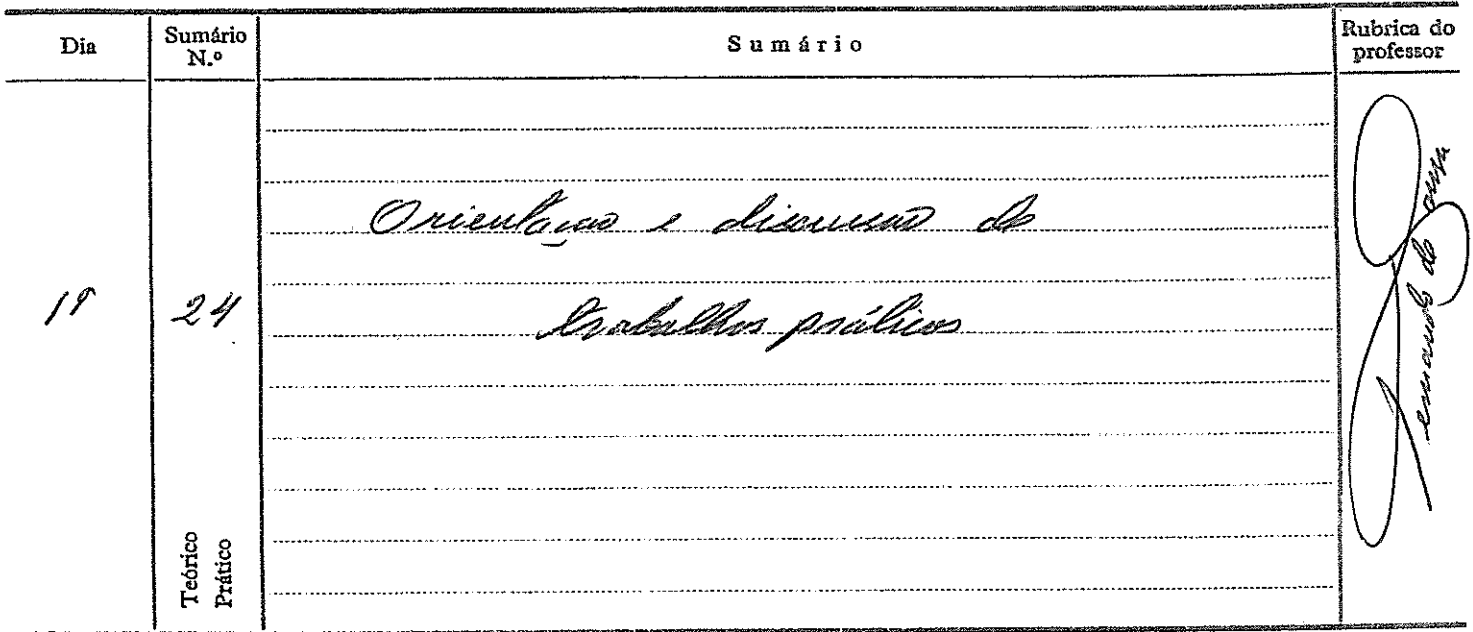 Dia
Sumário N.º
Sumário
Rubrica do professor
19
24
Orientação e discussão de
trabalhos práticos
Teórico
Prático
Fernando de Sousa